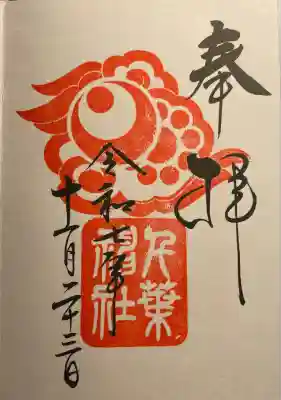 奉拝
葉
社
令和七年
十一月二十三日